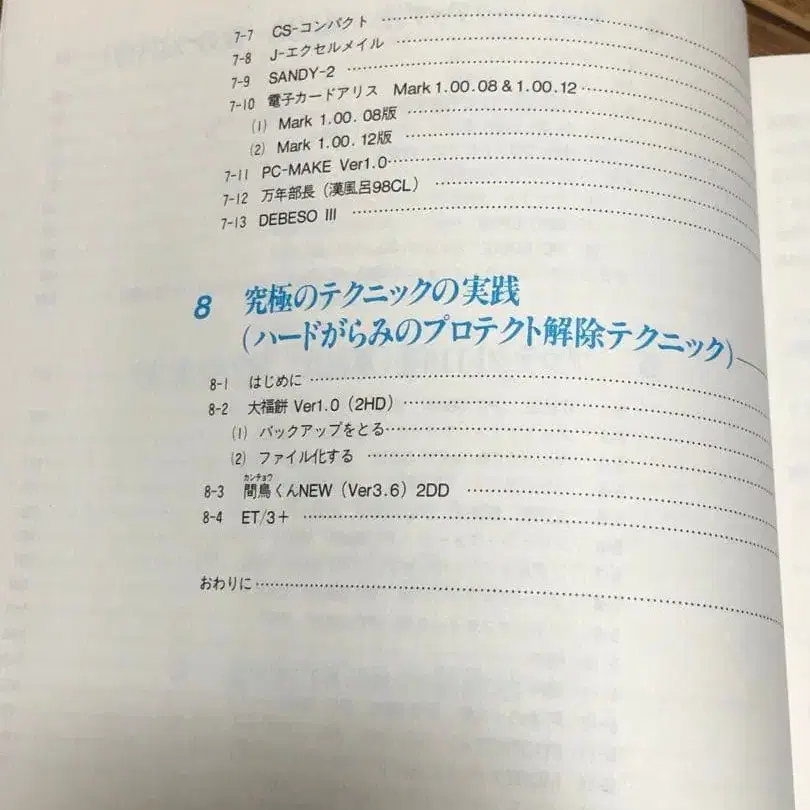 7-7 CS-コンパクト
7-8 J-エクセルメイル
7-9 SANDY-2
7-10 電子カードアリス Mark 1.00.08 & 1.00.12
(1) Mark 1.00.08版
(2) Mark 1.00.12版
7-11 PC-MAKE Ver1.0
7-12 万年部長(漢風呂98CL)
7-13 DEBESO III
8 究極のテクニックの実践
(ハードがらみのプロテクト解除テクニック)
8-1 はじめに
8-2 大福餅 Ver1.0(2HD)
(1) バックアップをとる
(2) ファイル化する
カンチョウ
8-3 間鳥くんNEW(Ver3.6)2DD
8-4 ET/3+
おわりに